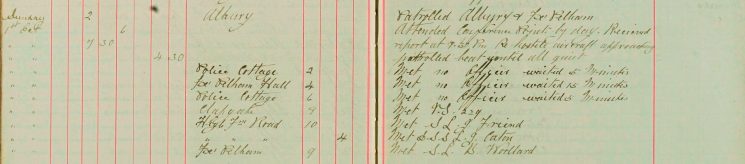 Sunday 2 Albury Patrolled Albury & Fx Pelham
1st Oct 6 Attended Conference Duty by day. Received
" " 7 30 report at 7.30 Pm hostile aircraft approaching
" " 4 30 patrolled beat until all quiet
" " Police Cottage 2 Met no Officer waited 5 Minutes
" " Fx Pelham Hall 4 Met no Officer waited 15 Minutes
" " Police Cottage 6 Met no Officer waited 5 Minutes
" " Clapgate 7 Met P.S.
" " High Fx Road 10 Met S L J Friend
" " " " 4 Met S.S.L J Caton
" " Fx Pelham 9 Met S.L. B. Woollard